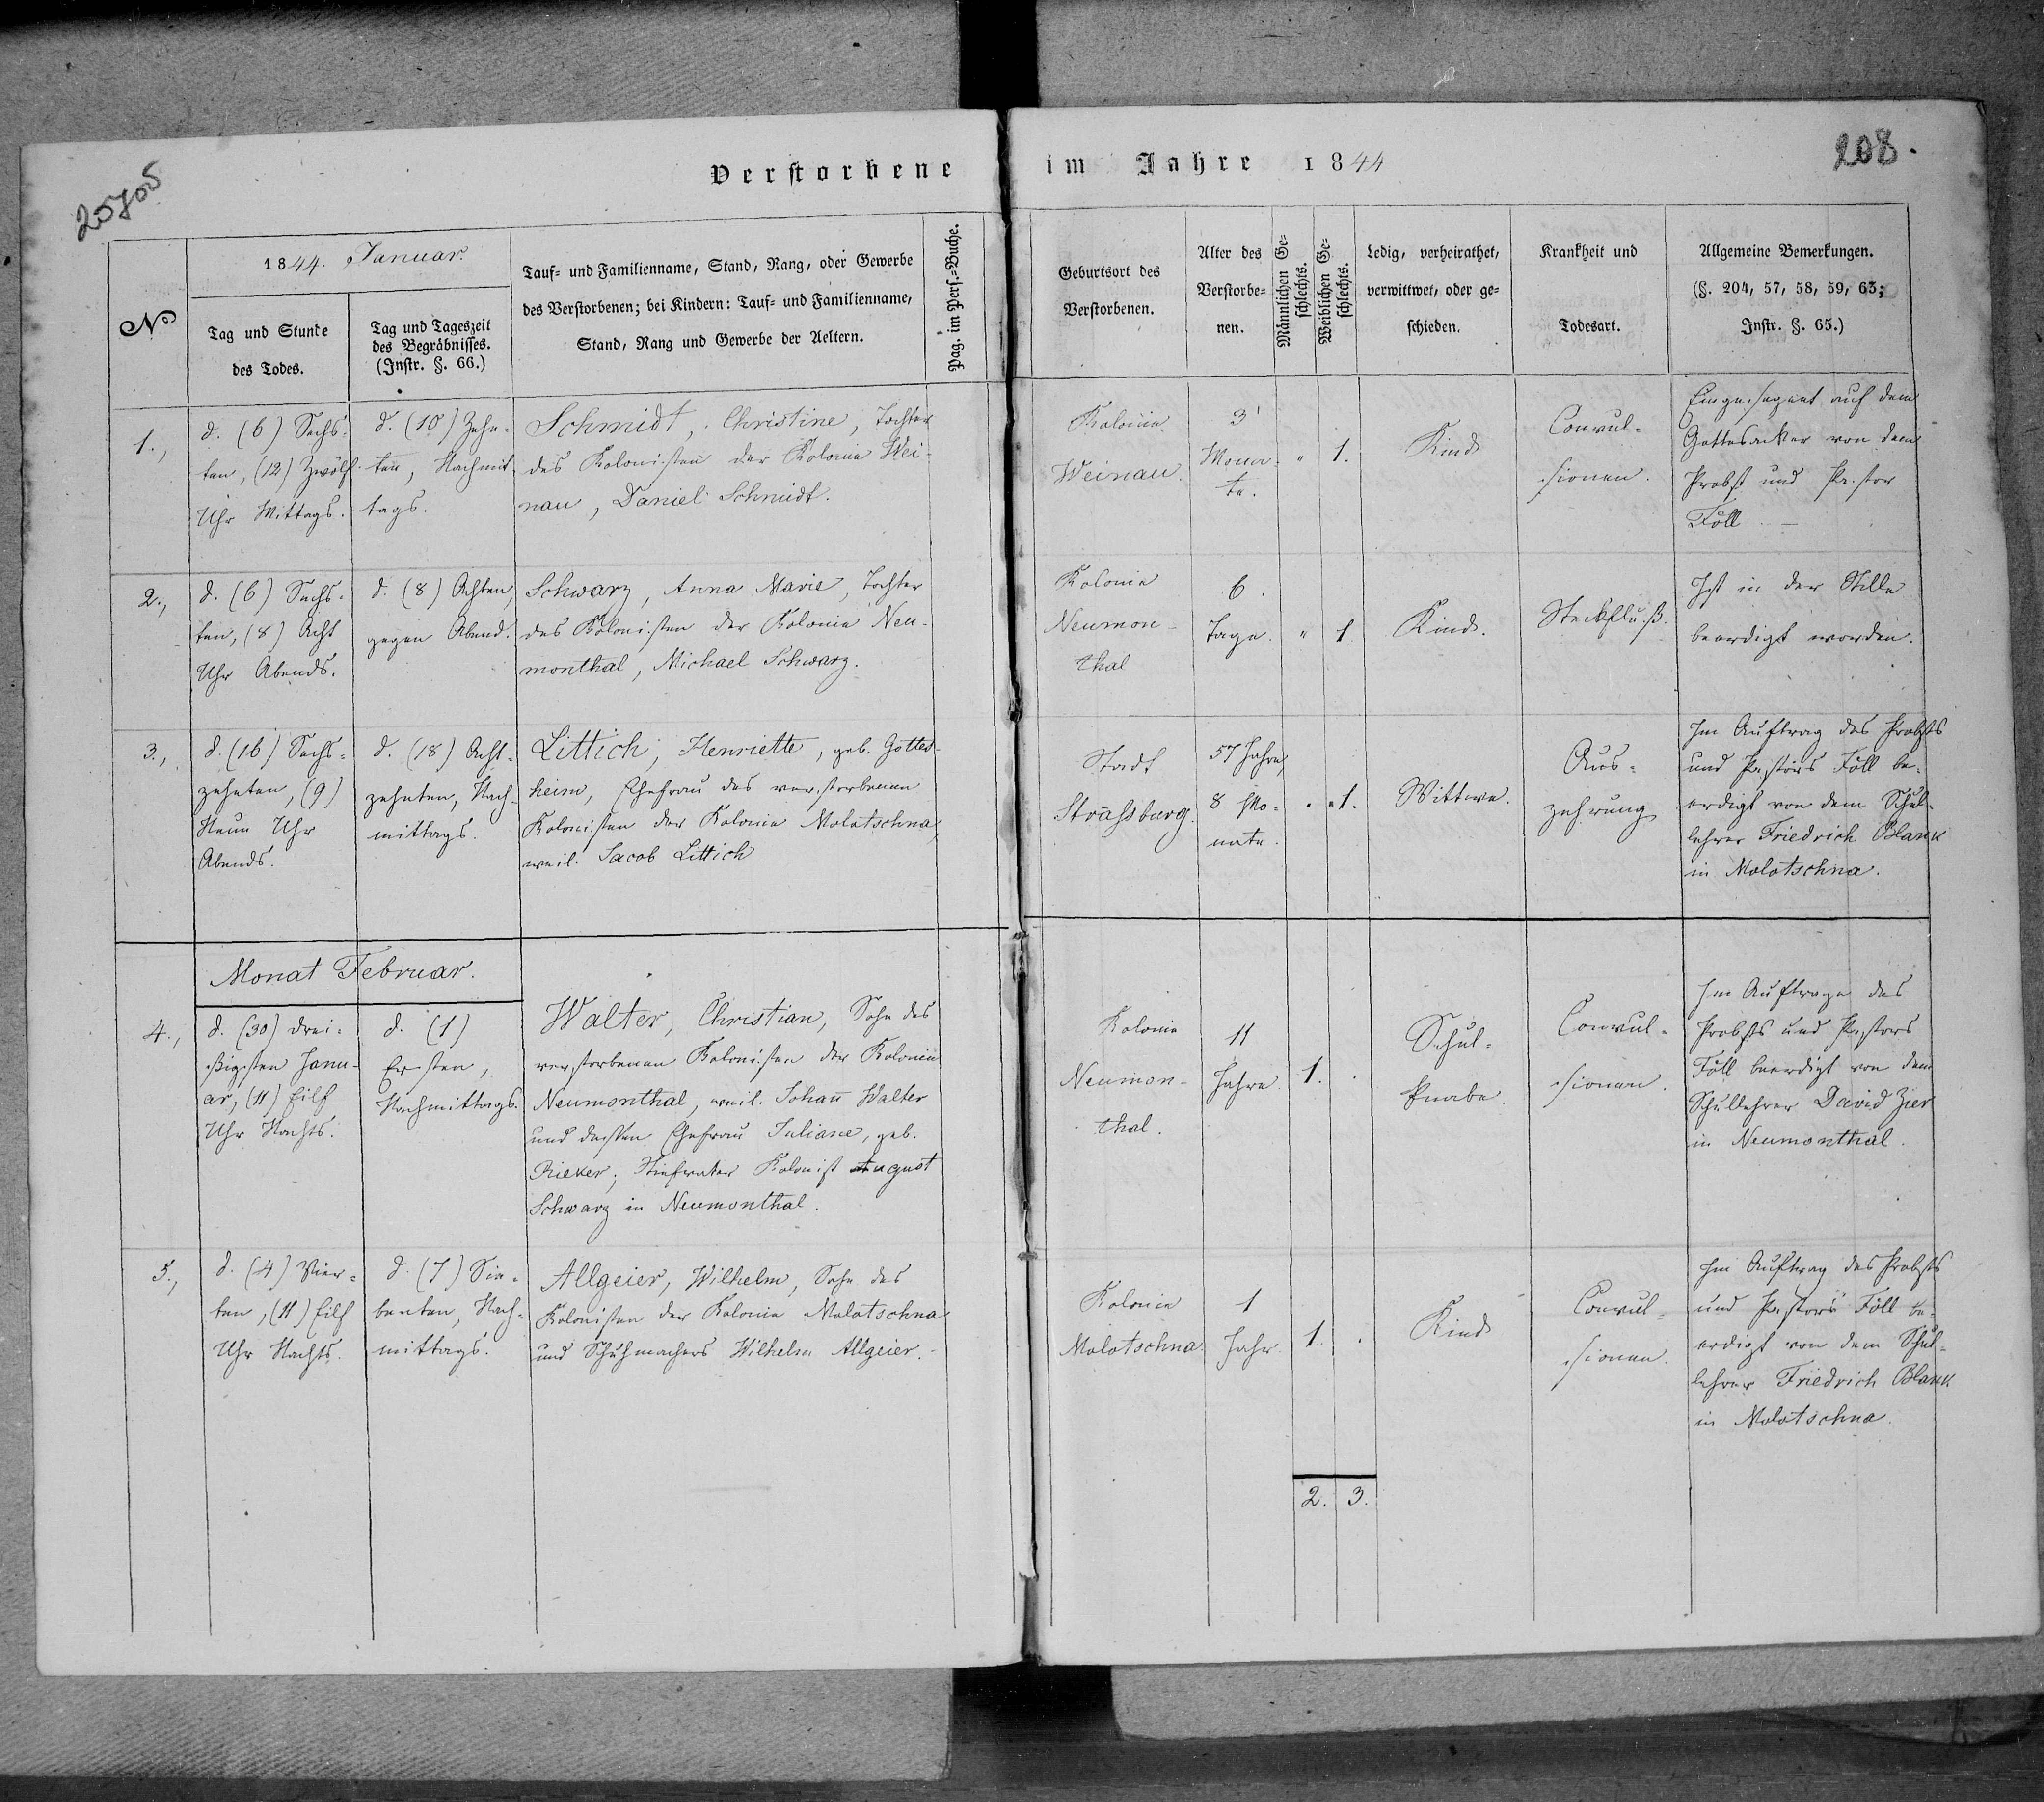 25705
208.
Verstorbene im Jahre 1844
No
1844. Januar.
Tag und Stunde
des Todes.
Tag und Tageszeit
des Begräbnisses.
(Instr. §. 66.)
Tauf- und Familienname, Stand, Rang, oder Gewerbe
des Verstorbenen; bei Kindern: Tauf- und Familienname,
Stand, Rang und Gewerbe der Aeltern.
Pag. im Pers.-Buche.
Geburtsort des
Verstorbenen.
Alter des
Verstorbe-
nen.
Männlichen Ge-
schlechts.
Weiblichen Ge-
schlechts.
Ledig, verheirathet,
verwittwet, oder ge-
schieden.
Krankheit und
Todesart.
Allgemeine Bemerkungen.
(§. 204, 57, 58, 59, 63;
Instr. §. 65.)
1.,
d. (6) Sechs-
ten, (12) Zwölf
Uhr Mittags.
d. (10) Zehn-
ten, Nachmit-
tags.
Schmidt, Christine, Tochter
des Kolonisten der Kolonie Wei-
nau, Daniel Schmidt.
Kolonie
Weinau.
3
Mona-
te.
" 1.
Kind
Convul-
sionen.
Eingesegnet auf dem
Gottesacker von dem
Probst und Pastor
Föll. —
2.,
d. (6) Sechs-
ten, (8) Acht
Uhr Abends.
d. (8) Achten,
gegen Abend.
Schwarz, Anna Marie, Tochter
des Kolonisten der Kolonie Neu-
monthal, Michael Schwarz.
Kolonie
Neumon-
thal
6.
Tage.
" 1
Kind.
Steckfluß.
Ist in der Stille
beerdigt worden.
3.,
d. (16) Sechs-
zehnten, (9)
Neun Uhr
Abends.
d. (18) Acht-
zehnten, Nach-
mittags.
Littich, Henriette, geb. Gottes-
heim, Ehefrau des verstorbenen
Kolonisten der Kolonie Molotschna,
weil. Jacob Littich
Stadt
Strassburg.
57 Jahre,
8 Mo-
nate.
" 1.
Wittwe.
Aus-
zehrung
Im Auftrag des Probsts
und Pastors Föll be-
erdigt von dem Schul-
lehrer Friedrich Blank
in Molotschna.
Monat Februar.
4.,
d. (30) drei-
ßigsten Janu-
ar, (11) Eilf
Uhr Nachts.
d. (1)
Ersten,
Nachmittags.
Walter, Christian, Sohn des
verstorbenen Kolonisten der Kolonie
Neumonthal, weil. Johann Walter
und dessen Ehefrau Juliane, geb.
Rieker; Stiefvater Kolonist August
Schwarz in Neumonthal.
Kolonie
Neumon-
thal.
11
Jahre.
1. .
Schul-
knabe.
Convul-
sionen.
Im Auftrage des
Probsts und Pastors
Föll beerdigt von dem
Schullehrer David Zier
in Neumonthal.
5.,
d. (4) Vier-
ten, (11) Eilf
Uhr Nachts.
d. (7) Sie-
benten, Nach-
mittags.
Allgeier, Wilhelm, Sohn des
Kolonisten der Kolonie Molotschna
und Schuhmachers Wilhelm Allgeier. -
Kolonie
Molotschna.
1
Jahr.
1. .
Kind
Convul-
sionen.
Im Auftrag des Probsts
und Pastors Föll be-
erdigt von dem Schul-
lehrer Friedrich Blank
in Molotschna.
2. 3.